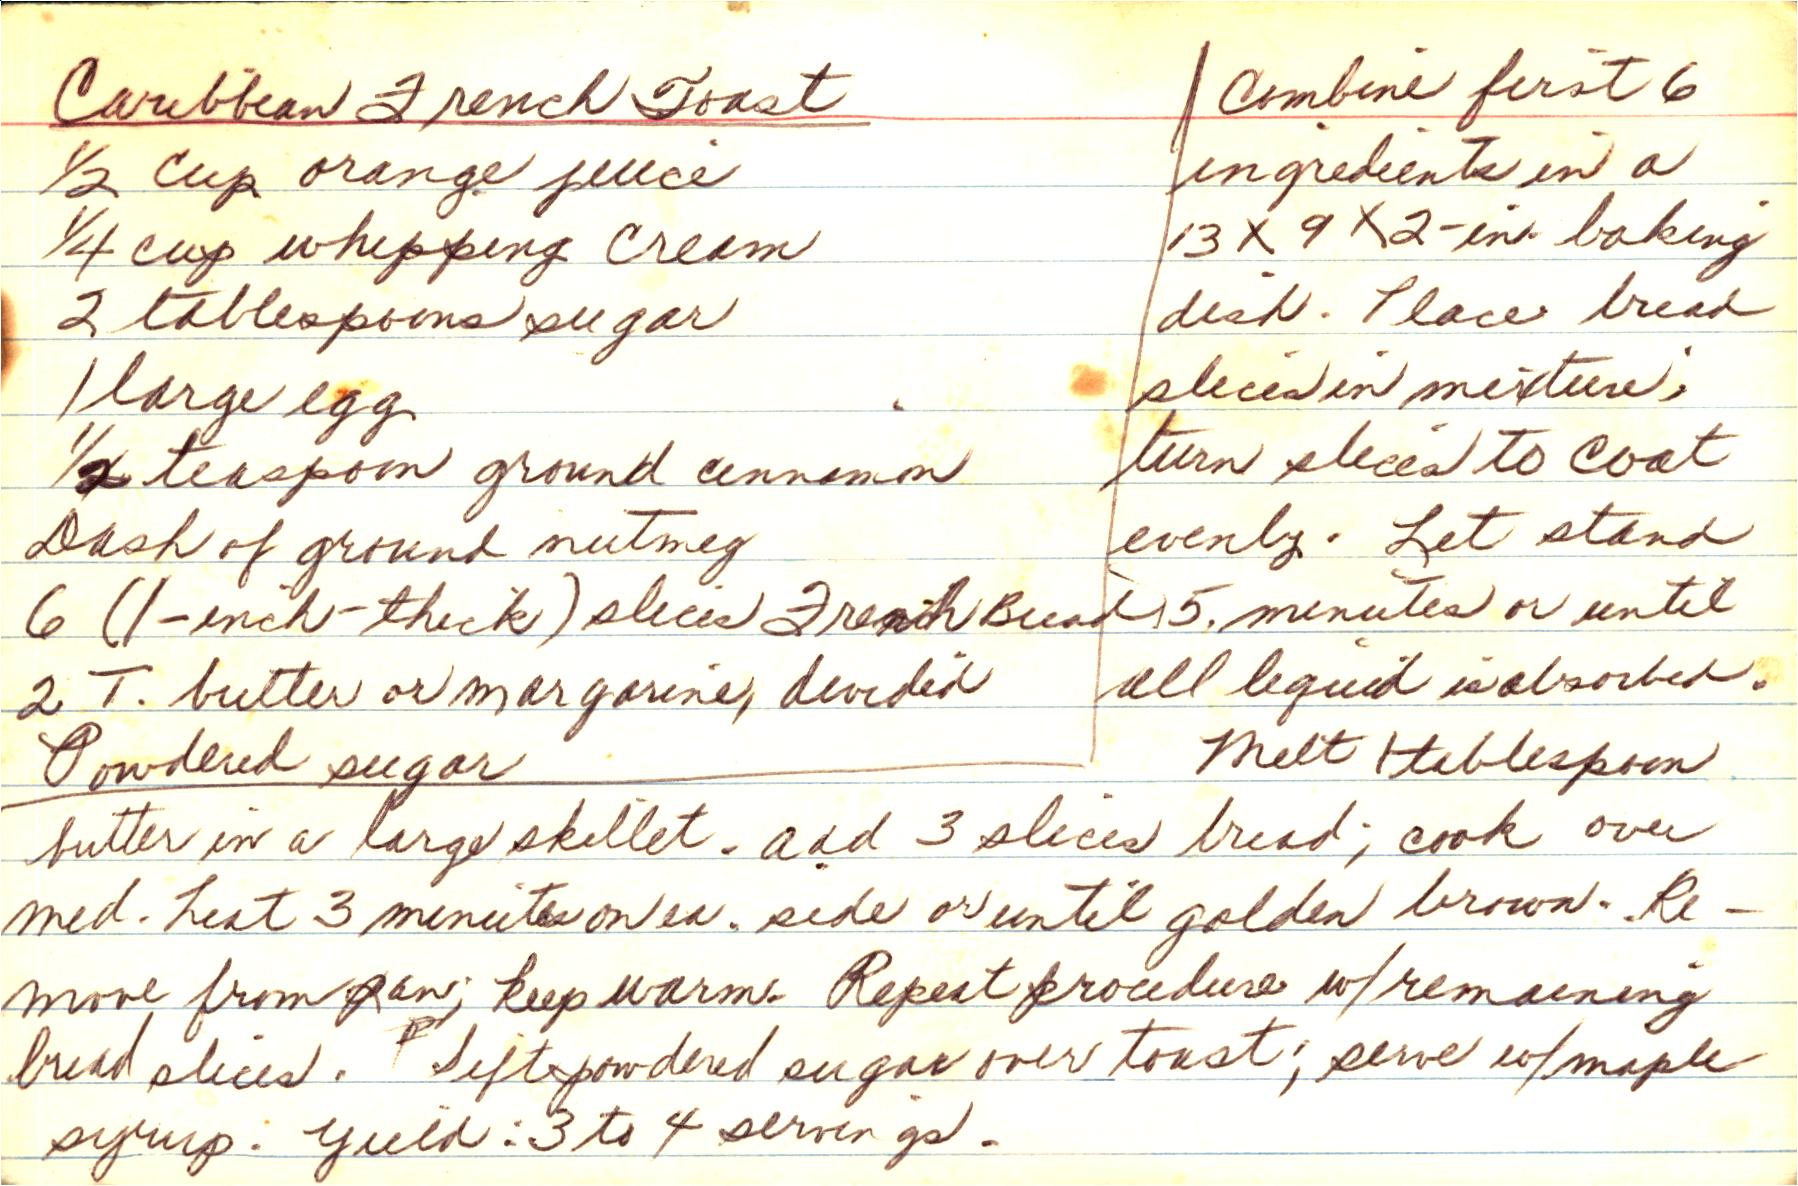 Caribbean French Toast
1/2 cup orange juice
1/4 cup whipping cream
2 tablespoons sugar
1 large egg
1/2 teaspoon ground cinnamon
Dash of ground nutmeg
6 (1-inch-thick) slices French Bread
2 T. butter or margarine, divided
Powdered sugar
Combine first 6
ingredients in a
13 X 9 X 2-in. baking
dish. Place bread
slices in mixture;
turn slices to coat
evenly. Let stand
5 minutes or until
all liquid is absorbed.
Melt 1 tablespoon
butter in a large skillet. add 3 slices bread; cook over
med. heat 3 minutes on ea. side or until golden brown. Re-
move from pan; keep warm. Repeat procedure w/remaining
bread slices. Sift powdered sugar over toast; serve w/maple
syrup. Yield: 3 to 4 servings.